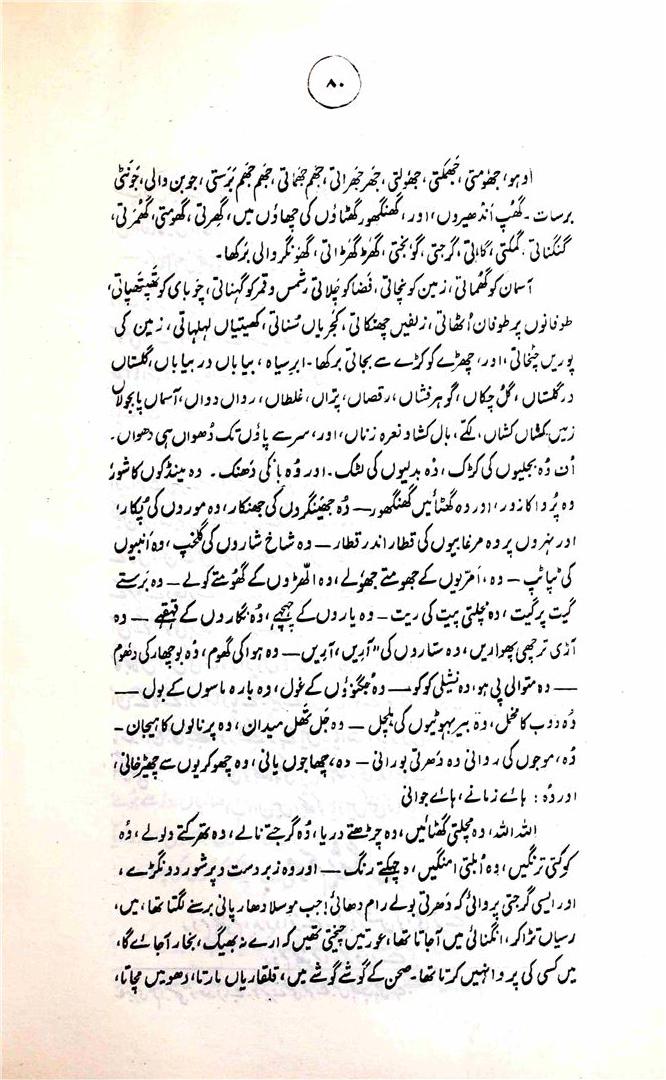 ۸۰
اوہو، جھومتی، جھمکتی، جھولتی، جھرجھراتی، جھم جھماتی، جھم جھم برستی، جوبن والی، جَونٹی
برسات۔ گھُپ اندھیروں، اور، گھنگھور گھٹاؤں کی چھاؤں میں، گھِرتی، گھومتی، گھُمرتی،
گنگناتی، گمکتی، گاہتی، گرجتی، گونجتی، گھڑ گھڑاتی، گھونگر والی بُرکھا۔
آسمان کو گھُماتی، زمین کو نچاتی، فضا کو جُلاتی، شمس و قمر کو گہناتی، چوبای کو تھپتھپاتی،
طوفانوں پر طوفان اُٹھاتی، زلفیں چھٹکاتی، کجریاں سُناتی، کھیتیاں لہلہاتی، زمین کی
پوریں چٹخاتی، اور، چھڑے کو کڑے سے بجاتی برکھا۔ ابرِ سیاہ، بیاباں در بیاباں، گلستاں
در گلستاں، گُل چکاں، گوہر فشاں، رقصاں، پرّاں، غلطاں، رواں دواں، آسماں پابجولاں
زمیں کشاں کشاں، لکّے، بال کشا و نعرہ زناں، اور، سر سے پاؤں تک دُھواں ہی دھواں۔
اُن وُہ بجلیوں کی کڑک، وُہ بدلیوں کی لٹک۔ اور وُہ بانکی دھَنک۔ وہ مینڈکوں کا شور
وہ پُروا کا زور، اور وہ گھٹائیں گھنگھور — وُہ جھینگروں کی جھنکار، وہ موروں کی پُکار،
اور نہروں پر وہ مرغابیوں کی قطار اندر قطار — وہ شاخ شاروں کی گلخپ، وہ اَنبیوں
کی ٹپاٹپ — وہ، اَمریوں کے جھومتے جھولے، وہ الّھڑوں کے گھومتے کولے — وہ برستے
گیت پر گیت، وہ مچلتی پیت کی ریت — وہ یاروں کے چہچے، وُہ نگاروں کے قہقہے — وہ
آڑی ترچھی پھواریں، وہ ستاروں کی "آریں، آریں" — وہ ہوا کی گھوم، وُہ بوچھار کی دھوم
— وہ متوالی پی ہو، وہ نشیلی کوکو — وہ جگنوؤں کے غول، وہ بارہ ماسوں کے بول —
وُہ دوب کا مخمل، وہ بیر بہوٹیوں کی ہلچل — وہ جل تھل میدان، وہ پرنالوں کا ہیجان۔
وُہ، موجوں کی روانی وہ دھرتی پورانی — وہ، چھاجوں پانی، وہ چھوکریوں سے چھیڑخانی،
اور وُہ: ہائے زمانے، ہائے جوانی
اللہ اللہ، وہ مچلتی گھٹائیں، وہ چڑھتے دریا، وُہ گرجتے نالے، وہ تھرکتے ولولے، وُہ
کوکتی ترنگیں، وہ اُبلتی امنگیں، وہ چہکتے رنگ — اور وہ زبردست و پرشور دونگڑے،
اور ایسی گرجتی پروائی کہ دھرتی بولے رام دھائی! جب موسلا دھار پانی برسنے لگتا تھا، میں،
رسیاں تڑا کر، انگنائی میں آجاتا تھا، عورتیں چیختی تھیں کہ ارے نہ بھیگ، بخار آجائے گا،
میں کسی کی پروا نہیں کرتا تھا۔ صحن کے گوشے گوشے میں، قلقاریاں مارتا، دھومیں مچاتا،